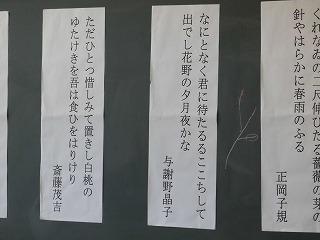 くれなゐの二尺伸びたる薔薇の芽の
針やはらかに春雨のふる
正岡子規
なにとなく君に待たるるここちして
出でし花野の夕月夜かな
与謝野晶子
ただひとつ惜しみて置きし白桃の
ゆたけきを吾は食ひをはりけり
斎藤茂吉